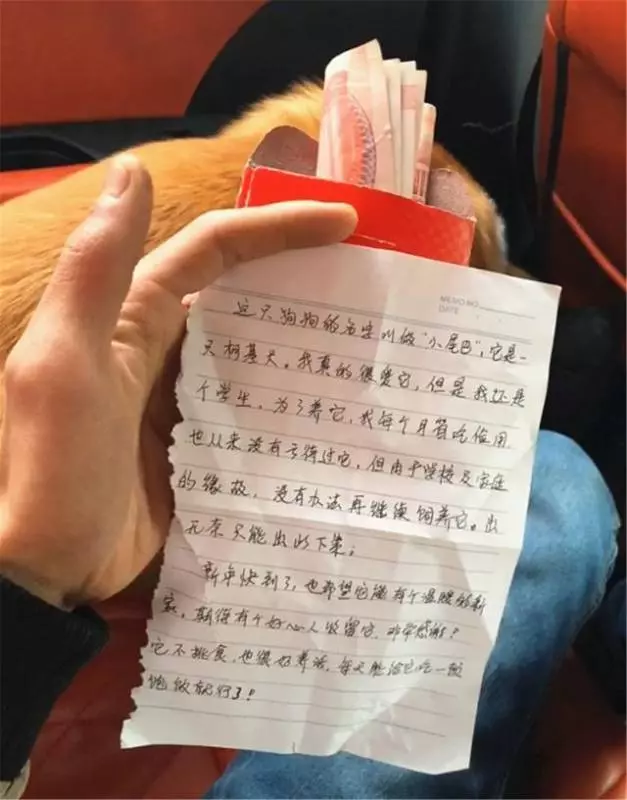 MEMO NO.
DATE
这只狗狗的名字叫做"小尾巴",它是一
只柯基犬。我真的很爱它,但是我还是
个学生,为了养它,我每个月省吃俭用
也从来没有亏待过它,但由于学校及家庭
的缘故,没有办法再继续饲养它。出
无奈只能出此下策;
新年快到了,也希望它能有个温暖的新
家,期待有个好心人收留它,非常感谢!
它不挑食,也很好养活,每天能给它吃一顿
饱饭就行了!